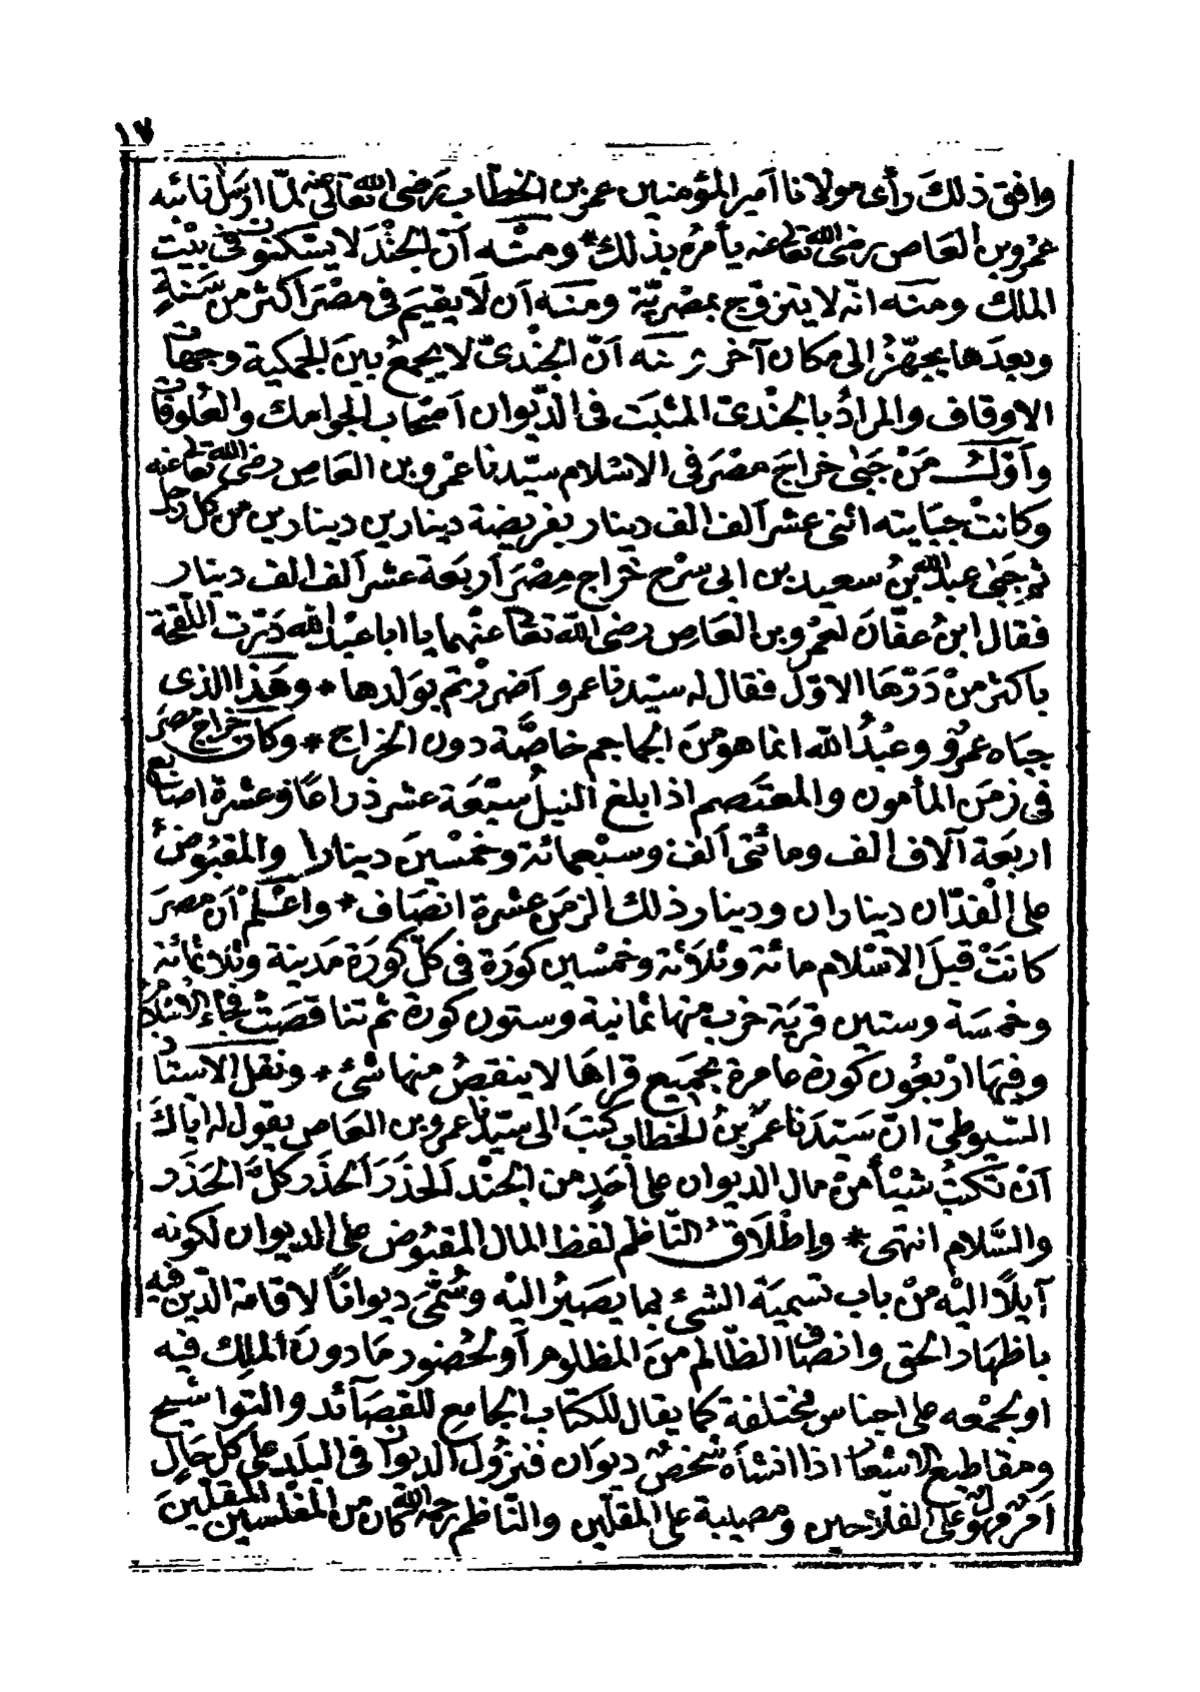 ١٧
وافق ذلك رأى مولانا امير المؤمنين عمر بن الخطّاب رضى الله تعالى عنه لمّا ارسل نائبه
عمرو بن العاص رضى الله تعالى عنه يأمره بذلك * ومنه آن الجند لا يسكنون فى بيت
الملك ومنه انّه لا يتزوّج بمصريّة ومنه ان لا يقيم فى مصر اكثر من سنة
وبعدها يجهّز الى مكان آخر ومنه آن الجندىّ لا يجمع بين الجمكية وجهات
الاوقاف والمراد بالجندىّ المثبت فى الدّيوان اصحاب الجوامك والعلوفات
وآوّل من جبى خراج مصر فى الاسلام سيّدنا عمرو بن العاص رضى الله تعالى عنه
وكانت جبايته اثنى عشر آلف الف دينار بفريضة دينارين دينارين من كل رجل
ثم جبى عبد الله بن سعيد بن ابى سرح خراج مصر آربعة عشر آلف الف دينار
فقال ابن عفّان لعمرو بن العاص رضى الله تعالى عنهما يا ابا عبد الله درّت اللقحة
باكثر من درّها الاوّل فقال له سيّدنا عمرو آضررتم بولدها * وهذا الذى
جباه عمرو وعبد الله انما هو من الجماجم خاصّة دون الخراج * وكان خراج مصر
فى زمن المأمون والمعتصم اذا بلغ النيل سبعة عشر ذراعا وعشرة اصابع
اربعة آلاف الف ومائتى آلف وسبعمائة وخمسين دينارا والمقبوض
على الفدّان ديناران ودينار ذلك الزمن عشرة انصاف * واعلم آن مصر
كانت قبل الاسلام مائة وثلاثة وخمسين كورة فى كلّ كورة مدينة وثلاثمائة
وخمسة وستين قرية خرب منها ثمانية وستون كورة ثم تناقصت فجاء الاسلام
وفيها اربعون كورة عامرة بجميع قراها لا ينقص منها شئ * ونقل الاستاذ
السّيوطىّ انّ سيّدنا عمر بن الخطاب كتب الى سيّدنا عمرو بن العاص يقول له ايّاك
آن تكتب شيئا من مال الديوان على احد من الجند الحذر الحذر كلّ الحذر
والسّلام انتهى * واطلاق النّاظم لفظ المال المقبوض على الديوان لكونه
آيلاً اليه من باب تسمية الشئ بما يصير اليه وسُمّى ديوانًا لاقامة الدّين فيه
باظهار الحق وانصاف الظّالم من المظلوم آو لحضور مادون الملك فيه
او لجمعه على اجناس مختلفة كما يقال للكتاب الجامع للقصآئد والتواشيح
ومقاطيع الاشعار اذا انشأه شخص ديوان فنزول الديوان فى البلد على كل حال
آمر مهول على الفلاحين ومصيبة على المقلّين والنّاظم رحمه الله كان من المفلسين المقلّين